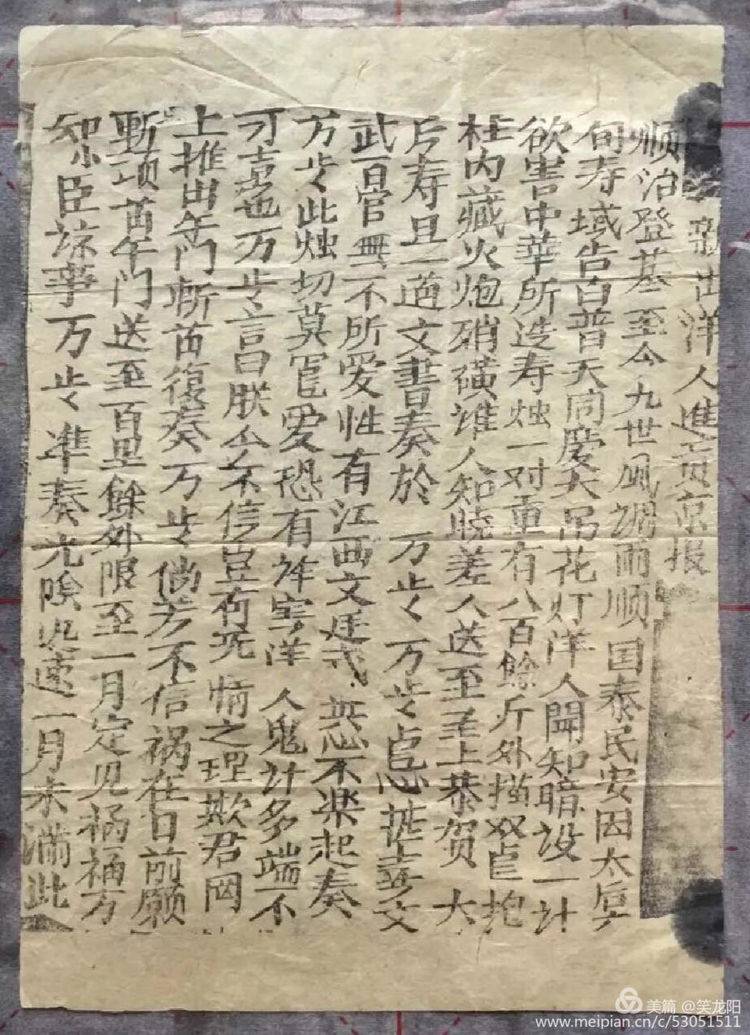 新出洋人進貢京报
順治登基至今九世风调雨顺国泰民安因太后六
旬寿域告白普天同慶大吊花灯洋人聞知暗设一计
欲害中華所造寿烛一对重有八百餘斤外描双龙抱
柱内藏火炮硝磺谁人知晓差人送至圣上恭贺大
后寿旦一道文書奏於万岁万岁龙心喜文
武百官無不所爱惟有江西文廷式不楽起奏
万岁此烛切莫爱恐有祥害洋人鬼计多端不
可喜也万岁言曰朕全不信豈有死情之理欺君罔
上推出午门斬首復奏万岁倘若不信祸在目前願
斬项首午门送至百里餘外限至一月定见禍福万
知臣諒事万岁準奏光陰迅速一月未滿此
美篇 @笑龙阳
www.meipian.cn/c/53051511